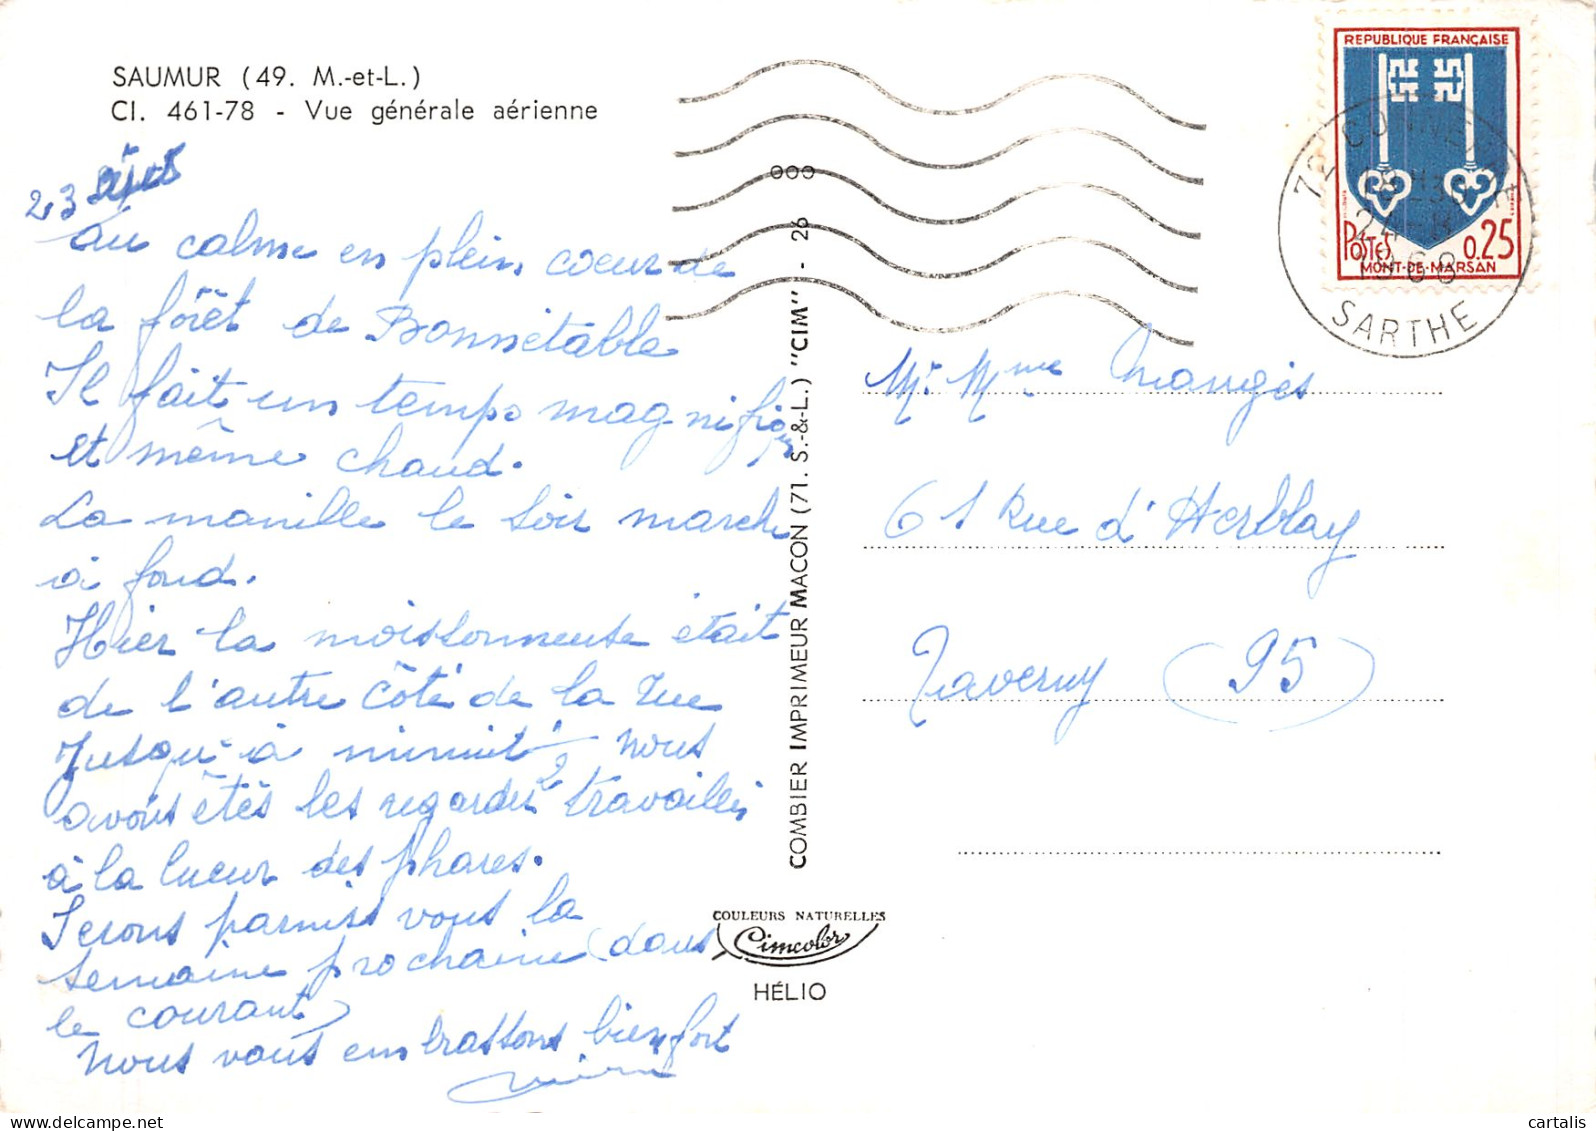 SAUMUR (49. M.-et-L.)
CI. 461-78 - Vue générale aérienne
23
au calme en plein coeur de
la forêt de Bonnétable
Il fait un temps magnifique
et même chaud.
La manille le soir marche
à fond.
Hier la moissonneuse était
de l'autre côté de la rue
jusqu'à minuit nous
avons étés les regarder travailler
à la lueur des phares.
Serons parmis vous la
semaine prochaine (dans
le courant)
Nous vous embrassons bien fort
COMBIER IMPRIMEUR MACON (71. S.-&-L.) "CIM" - 26
000
COULEURS NATURELLES
Cimcolor
HÉLIO
REPUBLIQUE FRANÇAISE
POSTES 0.25
MONT-DE-MARSAN
72
24-8
1968
SARTHE
Mr Mme Maugés
61 Rue d'Herblay
Taverny (95)
cartalis | delcampe.com